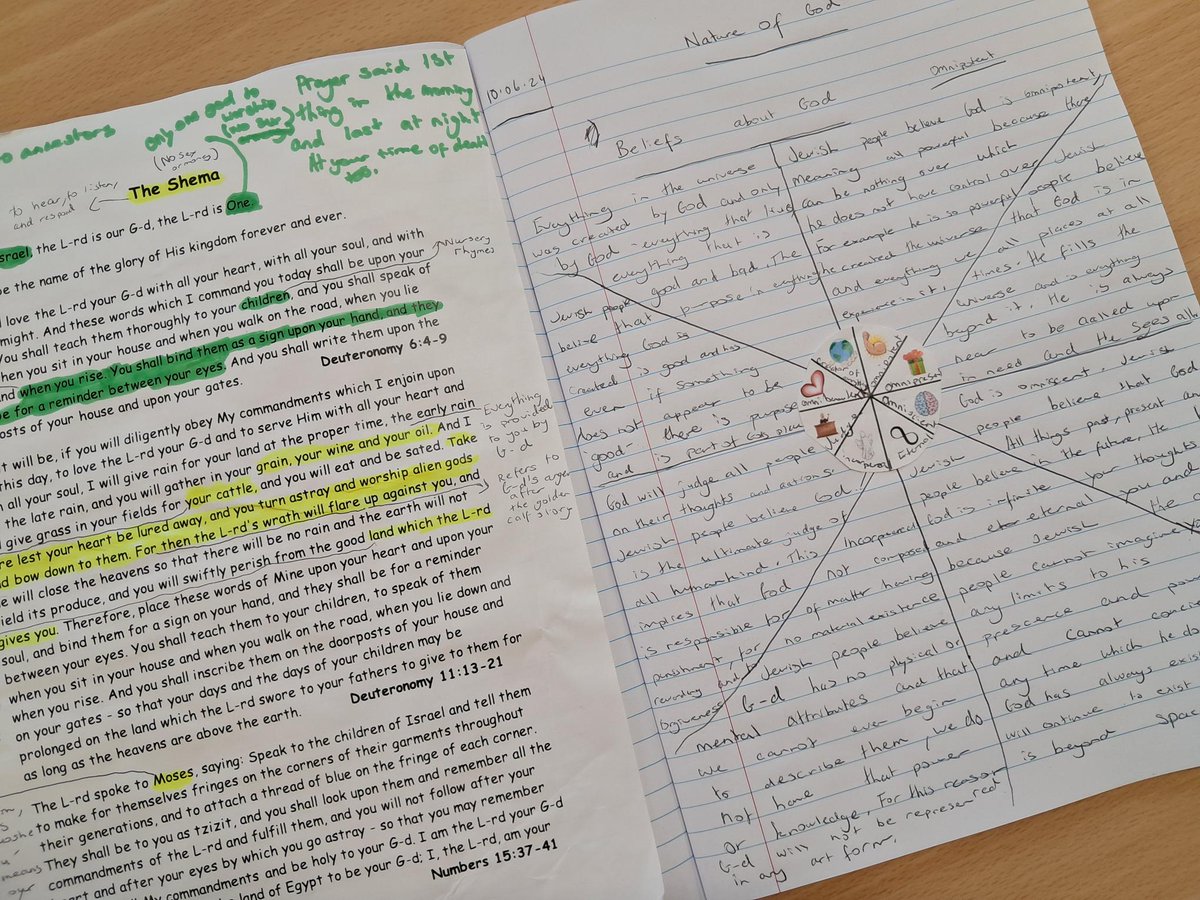 to ancestors
only one god to
worship
Prayer said 1st
thing in the morning
and last at night
At your time of death
to hear, to listen,
and respond
The Shema
Israel, the L-rd is our G-d, the L-rd is One.
be the name of the glory of His kingdom forever and ever.
love the L-rd your G-d with all your heart, with all your soul, and with
might. And these words which I command you today shall be upon your
You shall teach them thoroughly to your children, and you shall speak of
when you sit in your house and when you walk on the road, when you lie
and when you rise. You shall bind them as a sign upon your hand, and they
be for a reminder between your eyes. And you shall write them upon the
posts of your house and upon your gates.
Deuteronomy 6:4-9
Nursery
rhymes
it will be, if you will diligently obey My commandments which I enjoin upon
this day, to love the L-rd your G-d and to serve Him with all your heart and
with all your soul, I will give rain for your land at the proper time, the early rain
the late rain, and you will gather in your grain, your wine and your oil. And I
give grass in your fields for your cattle, and you will eat and be sated. Take
lest your heart be lured away, and you turn astray and worship alien gods
and bow down to them. For then the L-rd's wrath will flare up against you, and
close the heavens so that there will be no rain and the earth will not
yield its produce, and you will swiftly perish from the good land which the L-rd
gives you. Therefore, place these words of Mine upon your heart and upon your
soul, and bind them for a sign on your hand, and they shall be for a reminder
between your eyes. You shall teach them to your children, to speak of them
when you sit in your house and when you walk on the road, when you lie down and
when you rise. And you shall inscribe them on the doorposts of your house and
on your gates - so that your days and the days of your children may be
prolonged on the land which the L-rd swore to your fathers to give to them for
as long as the heavens are above the earth.
Deuteronomy 11:13-21
Everything
is provided
to you by
G-d
Refers to
anger
after
the golden
calf story
The L-rd spoke to Moses, saying: Speak to the children of Israel and tell them
to make for themselves fringes on the corners of their garments throughout
their generations, and to attach a thread of blue on the fringe of each corner.
They shall be to you as tzizit, and you shall look upon them and remember all the
commandments of the L-rd and fulfill them, and you will not follow after your
heart and after your eyes by which you go astray - so that you may remember
My commandments and be holy to your G-d. I am the L-rd your G-d
land of Egypt to be your G-d; I, the L-rd, am your
Numbers 15:37-41
means
Nature Of God
10.06.24
Beliefs about God
Omnipotent
Everything in the universe
was created by God and only
by God - everything that live
everything that is
good and bad. The
Jewish people
belive that purpose in everything
everything God is
created is good and has
even if something
does not appear to be
good - there is purpose
and is part of Gods plan
Jewish people believe God is omnipotent
Meaning all powerful because there
can be nothing over which
he does not have control over. Jewish
For example he is so powerful people believe
he created the universe that God is in
and everything we all places at all
experience in it. times. He fills the
universe and is everything
beyond it. He is always
near to be called upon
in need and He sees all
God is omniscent. Jewish
people believe that God
All things past, present and
in the future. He
your thoughts
you and
Creator of
omnipotent
omnipresent
Omnis
Eternal
Incorporeal
Judge
God will judge all people
on their thoughts and actions.
Jewish people believe God
is the ultimate judge of
all humankind. This
implies that God
is responsible for
punishment, for
rewarding and
forgiveness
Incorporeal
not composed
of matter having
no material existence
Jewish people believe
G-d has no physical or
mental attributes and that
we cannot ever begin
to describe them, we do
not have that power
or knowledge. For this reason
G-d will not be represented
in any art form.
Jewish
people believe
God is infinite
and eternal
because Jewish
people cannot imagine
any limits to his
prescence and
and cannot
any time which he
God has always
will continue to exist
is beyond space